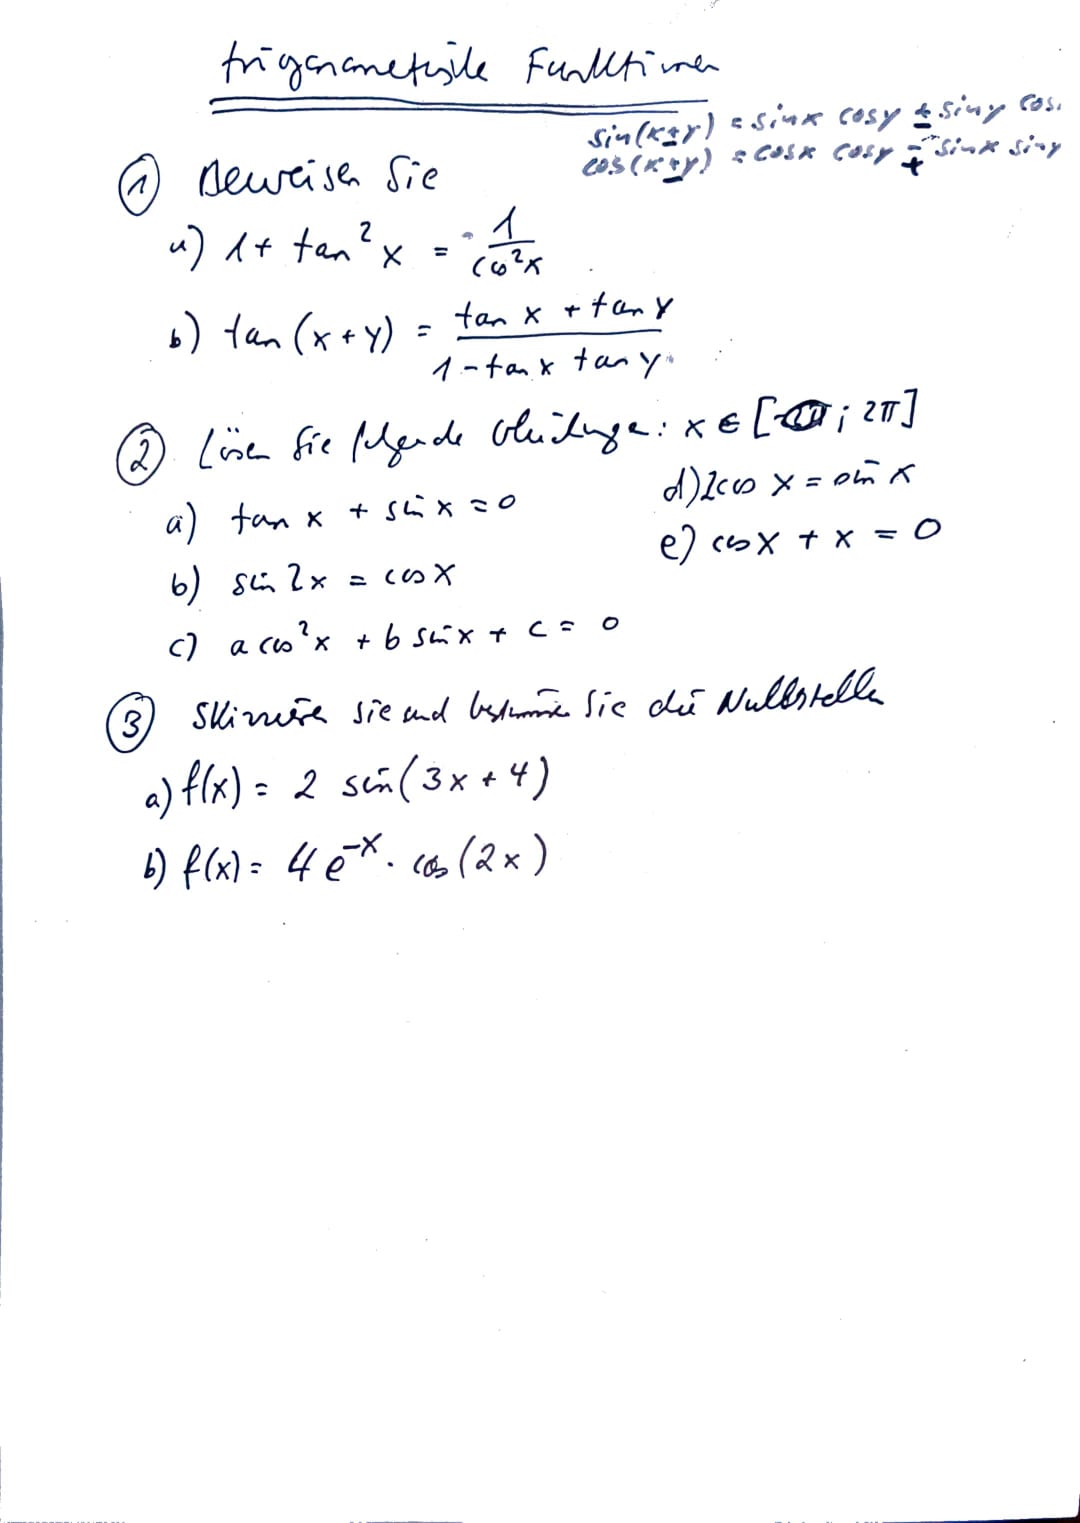 trigonometrische Funktionen
sin(x±y) = sinx cosy ± siny cos
cos(x±y) = cosx cosy ∓ sinx siny
① Beweisen Sie
a) 1 + tan²x = 1/cos²x
b) tan(x+y) = (tan x + tan y)/(1 - tan x tan y)
② Lösen Sie folgende Gleichungen: x ∈ [ ; 2π]
a) tan x + sin x = 0
d) 2cos x = sin x
b) sin 2x = cos x
e) cos x + x = 0
c) a cos²x + b sin x + c = 0
③ Skizzieren Sie und bestimmen Sie die Nullstellen
a) f(x) = 2 sin(3x + 4)
b) f(x) = 4e^-x · cos(2x)